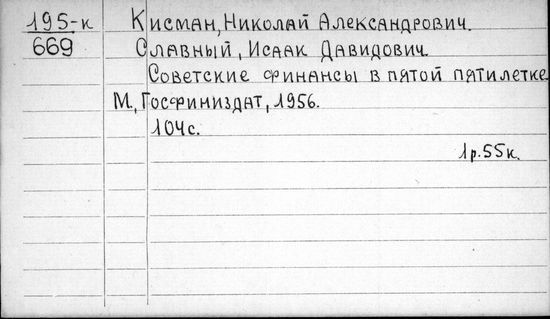 195-к Кисман, Николай Александрович.
669 Славный, Исаак Давидович.
Советские финансы в пятой пятилетке.
М., Госфиниздат, 1956.
104с.
1р.55к.